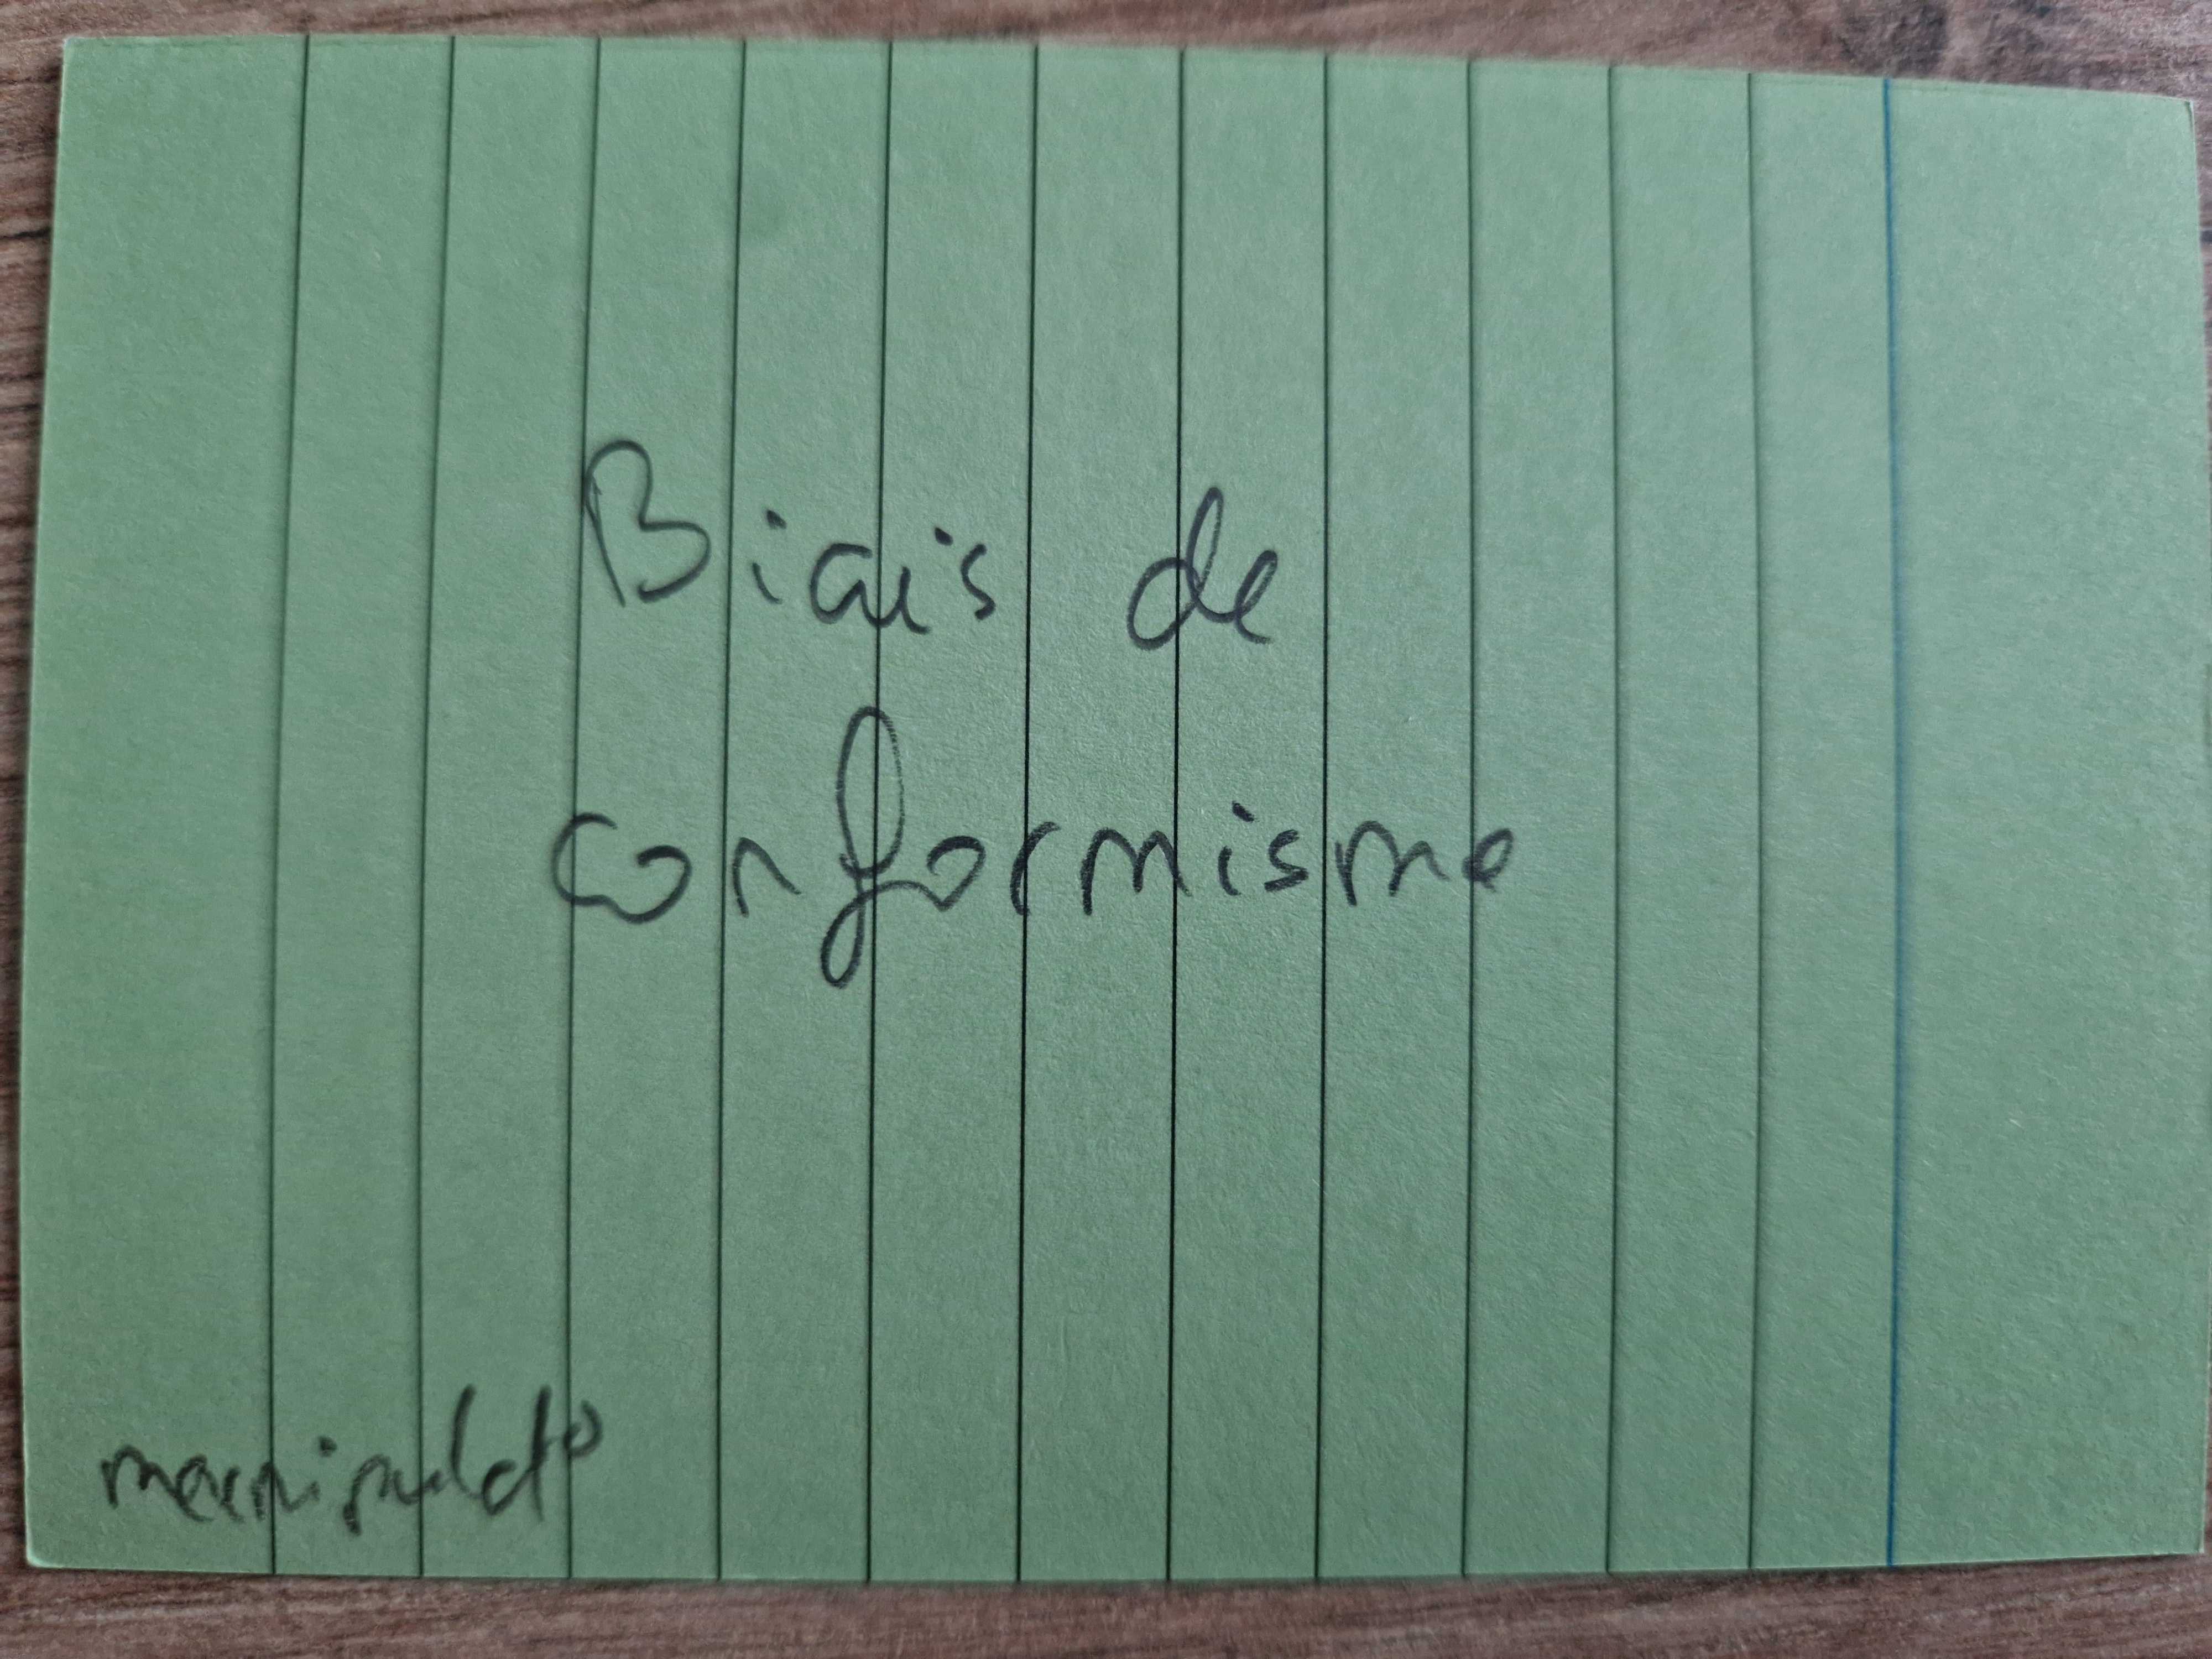 Biais de
conformisme
manipulato